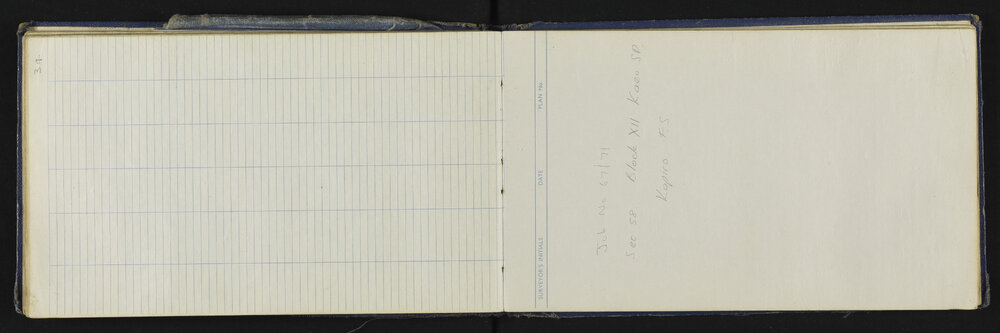 37.
SURVEYOR'S INITIALS DATE PLAN No.
Job No 67/71
Sec 58 Block XII Kaeo SD
Kapiro FS